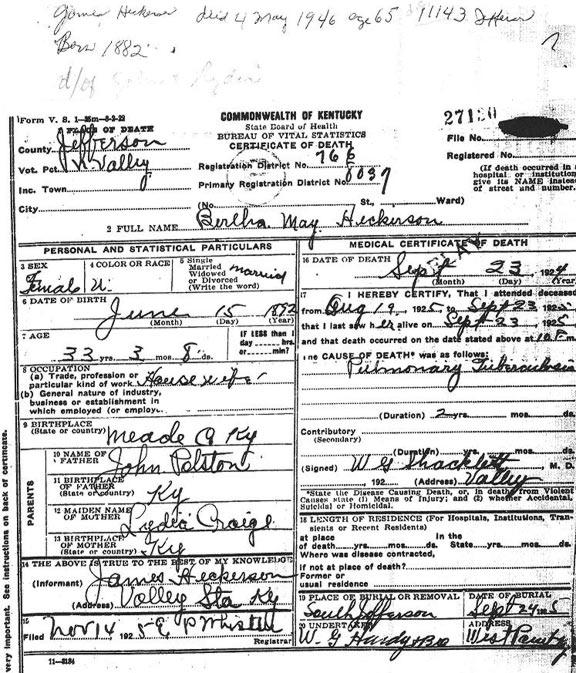 James Heckerson died 4 May 1946 age 65 11143 Jefferson
Born 1882
d/of
Form V. S. 1-35m-8-2-22
COMMONWEALTH OF KENTUCKY
State Board of Health
BUREAU OF VITAL STATISTICS
CERTIFICATE OF DEATH
27130
PLACE OF DEATH
County Jefferson
Vot. Pct. Valley
Inc. Town
City
Registration District No. 766
Primary Registration District No.
(No. St., Ward)
File No.
Registered No.
(If death occurred in a
hospital or institution
give its NAME instead
of street and number.
2 FULL NAME Bertha May Heckerson
PERSONAL AND STATISTICAL PARTICULARS
3 SEX Female
4 COLOR OR RACE W.
5 Single
Married
Widowed
or Divorced
(Write the word) married
6 DATE OF BIRTH June 15 1892
(Month) (Day) (Year)
7 AGE
33 yrs. 3 mos. 8 ds.
IF LESS than 1
day hrs.
or min?
8 OCCUPATION
(a) Trade, profession or
particular kind of work Housewife
(b) General nature of industry,
business or establishment in
which employed (or employ
9 BIRTHPLACE
(State or country) Meade Co Ky
PARENTS
10 NAME OF
FATHER John Polston
11 BIRTHPLACE
OF FATHER
(State or country) Ky
12 MAIDEN NAME
OF MOTHER Craige
13 BIRTHPLACE
OF MOTHER Ky
14 THE ABOVE IS TRUE TO THE BEST OF MY KNOWLEDG
(Informant) James Heckerson
(Address) Valley Sta Ky
15
Filed Nov 14 192 5
Registrar
11-3184
very important. See instructions on back of certificate.
MEDICAL CERTIFICATE OF DEATH
16 DATE OF DEATH Sept 23 192
(Month) (Day) (Year)
17 I HEREBY CERTIFY, That I attended deceased
from Aug 19, 1925 to Sept 23 1925
that I last saw her alive on Sept 23 1925
and that death occurred on the date stated above at m.
The CAUSE OF DEATH* was as follows:
Pulmonary Tuberculosis
(Duration) 2 yrs. mos. ds.
Contributory
(Secondary)
(Duration) yrs. mos. ds.
(Signed) W G Shacklett M. D.
, 192 (Address) Valley
*State the Disease Causing Death, or, in death from Violent
Causes state (1) Means of Injury; and (2) whether Accidental,
Suicidal or Homicidal.
18 LENGTH OF RESIDENCE (For Hospitals, Institutions, Tran-
sients or Recent Residents)
at place In the
of death yrs. mos. ds. State yrs. mos. ds.
Where was disease contracted,
if not at place of death?
Former or
usual residence
19 PLACE OF BURIAL OR REMOVAL South Jefferson
DATE OF BURIAL Sept 24 1925
20 UNDERTAKER W. G Hardy & Bro
ADDRESS West Point Ky